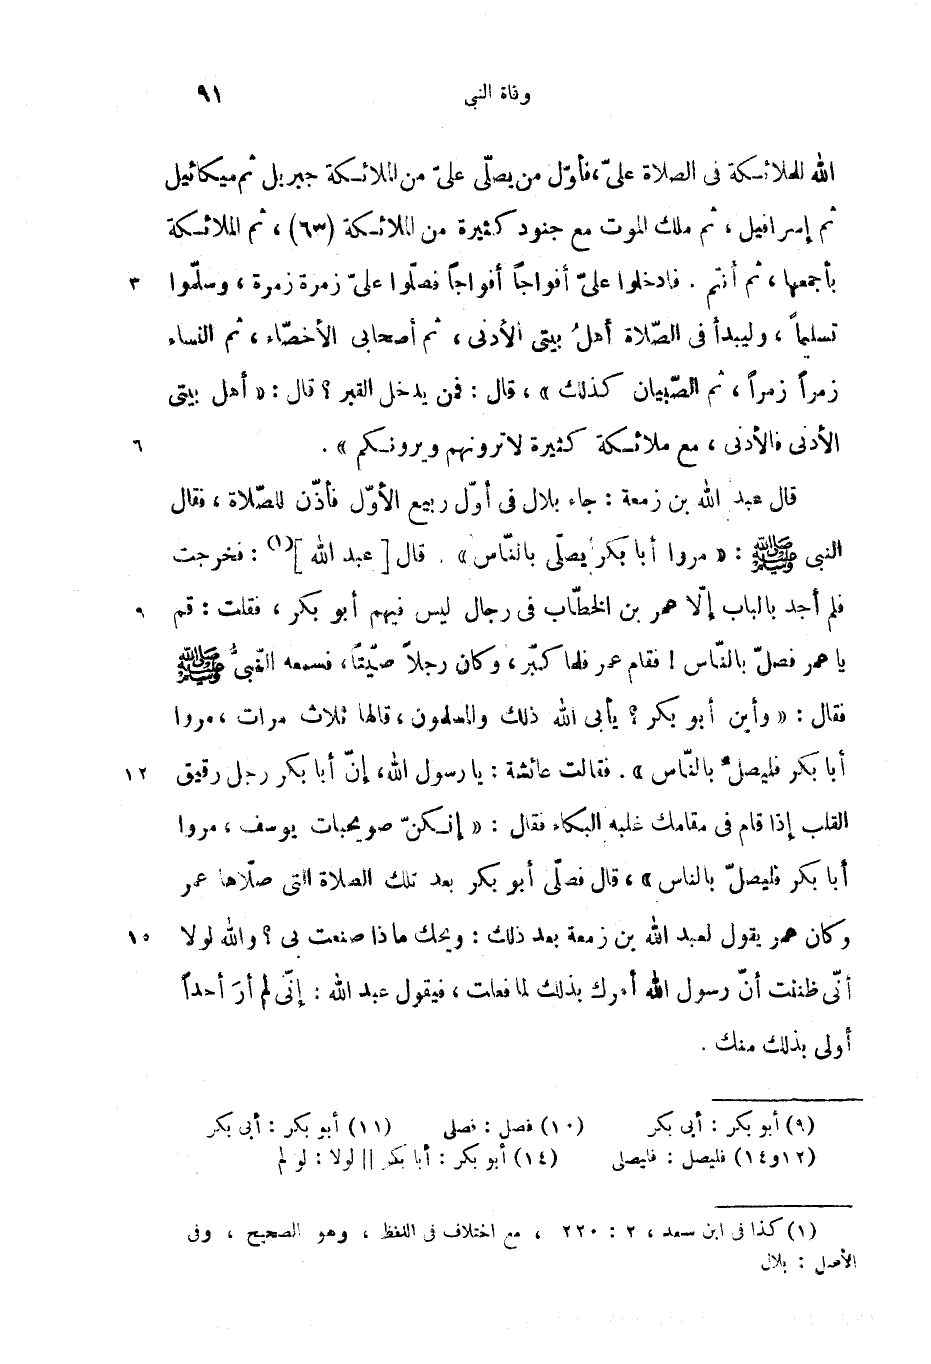 وفاة النبي ٩١
الله للملائكة فى الصلاة علىّ ، فأوّل من يصلّى علىّ من الملائكة جبريل ثم ميكائيل
ثم إسرافيل ، ثم ملك الموت مع جنود كثيرة من الملائكة (٦٣) ، ثم الملائكة
بأجمعها ، ثم أنتم . فادخلوا علىّ أفواجاً أفواجاً فصلّوا علىّ زمرة زمرة ، وسلّموا ٣
تسليماً ، وليبدأ فى الصّلاة أهلُ بيتى الأدنى ، ثم أصحابى الأخصّاء ، ثم النساء
زمراً زمراً ، ثم الصّبيان كذلك » ، قال : فمن يدخل القبر ؟ قال : « أهل بيتى
الأدنى فالأدنى ، مع ملائكة كثيرة لا ترونهم ويرونكم » . ٦
قال عبد الله بن زمعة : جاء بلال فى أوّل ربيع الأوّل فأذّن للصّلاة ، فقال
النبى ﷺ : « مروا أبا بكر يصلّى بالنّاس » . قال [ عبد الله ](١) : فخرجت
فلم أجد بالباب إلّا عمر بن الخطّاب فى رجال ليس فيهم أبو بكر ، فقلت : قم ٩
يا عمر فصلّ بالنّاس ! فقام عمر فلما كبّر ، وكان رجلاً صيّتاً ، فسمعه النّبىُّ ﷺ
فقال : « وأين أبو بكر ؟ يأبى الله ذلك والمسلمون ، قالها ثلاث مرات ، مروا
أبا بكر فليصلّ بالنّاس » . فقالت عائشة : يا رسول الله ، إنّ أبا بكر رجل رقيق ١٢
القلب إذا قام فى مقامك غلبه البكاء فقال : « إنكنّ صويحبات يوسف ، مروا
أبا بكر فليصلّ بالناس » ، قال فصلّى أبو بكر بعد تلك الصلاة التى صلّاها عمر
وكان عمر يقول لعبد الله بن زمعة بعد ذلك : ويحك ماذا صنعت بى ؟ والله لولا ١٥
أنّى ظننت أنّ رسول الله أمرك بذلك لما فعلت ، فيقول عبد الله : إنّى لم أرَ أحداً
أولى بذلك منك .
(٩) أبو بكر : أبى بكر (١٠) فصل : فصلى (١١) أبو بكر : أبى بكر
(١٢و١٤) فليصل : فليصلى (١٤) أبو بكر : أبا بكر || لولا : لو لم
(١) كذا فى ابن سعد ، ٢ : ٢٢٠ ، مع اختلاف فى اللفظ ، وهو الصحيح ، وفى
الأصل : بلال